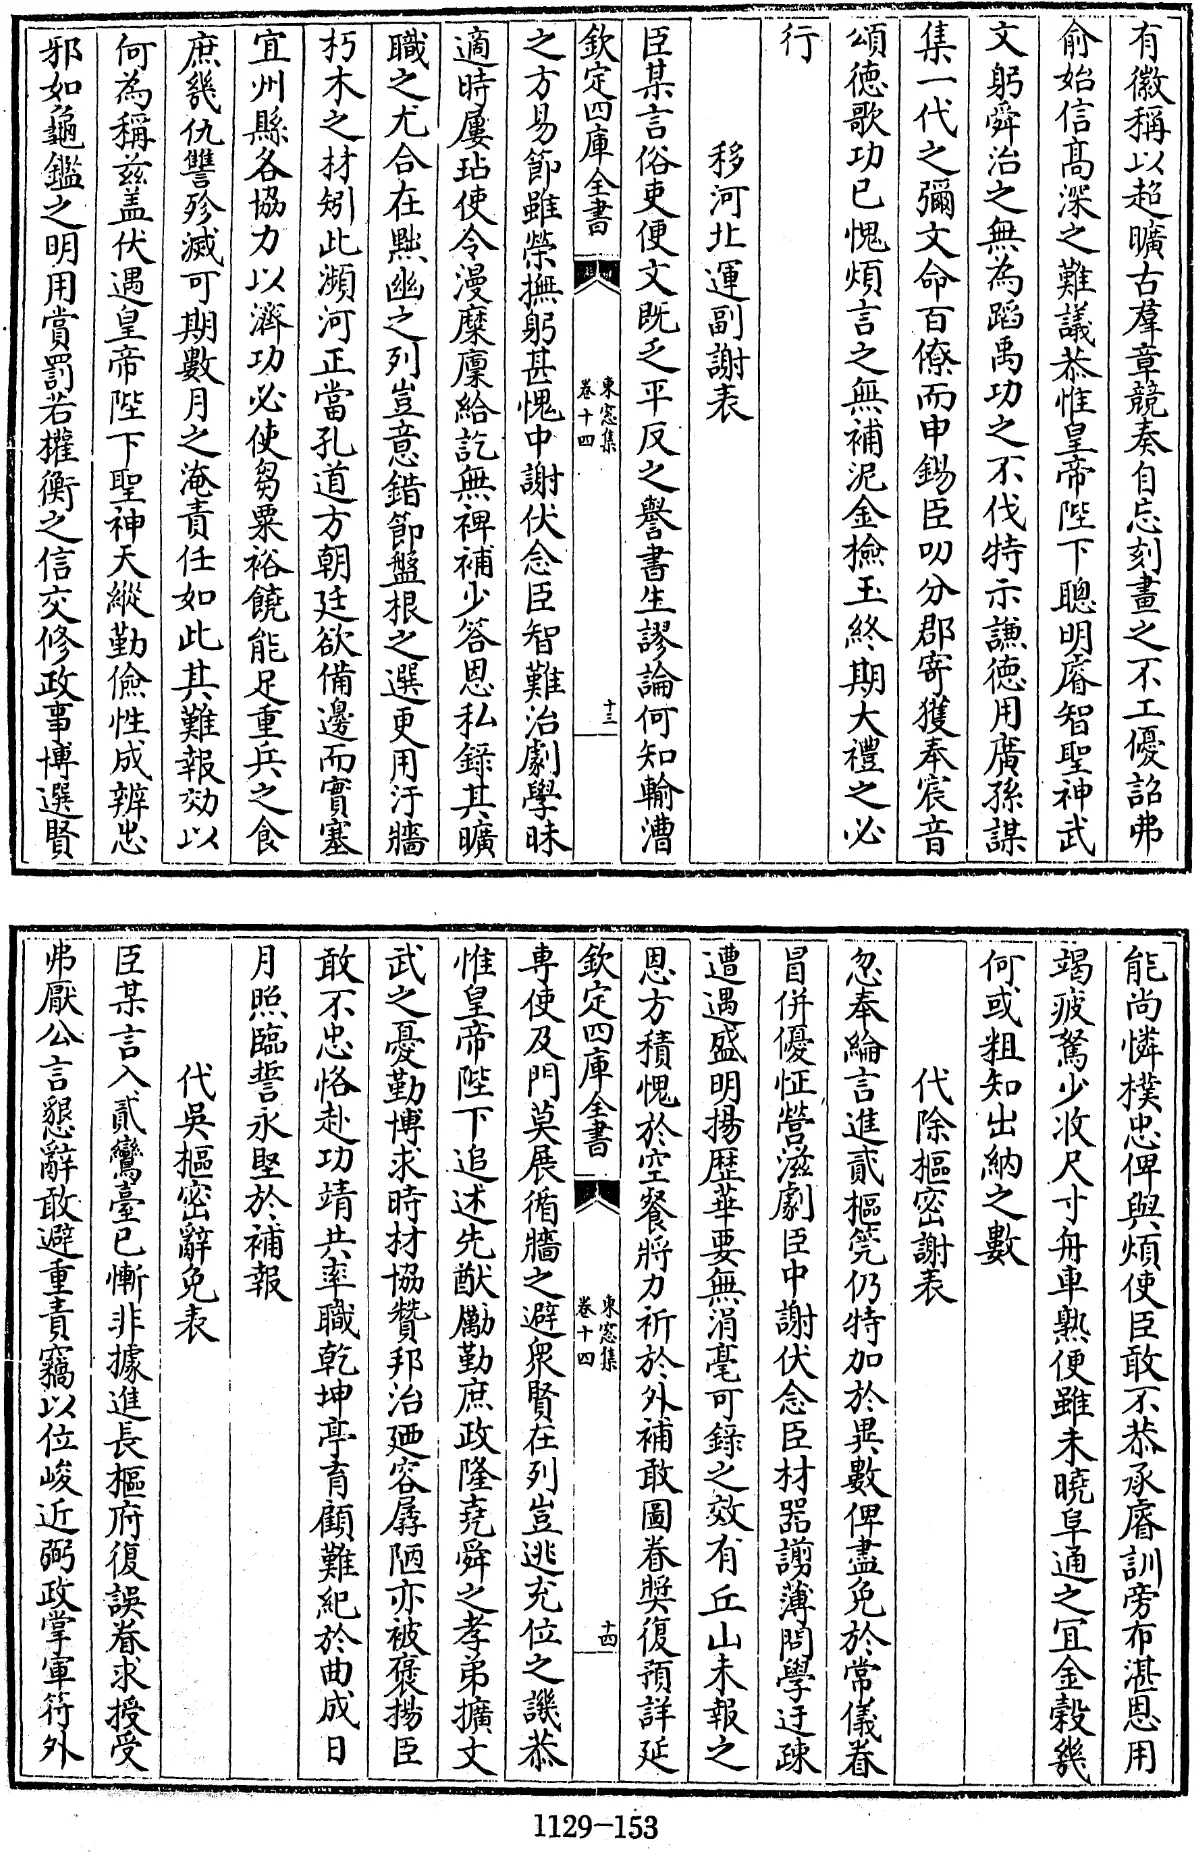 有徽稱以超曠古羣章競奏自忘刻畫之不工優詔弗
俞始信髙深之難議恭惟皇帝陛下聰明睿智聖神武
文躬舜治之無為蹈禹功之不伐特示謙德用廣孫謀
集一代之彌文命百僚而申錫臣叨分郡寄獲奉宸音
頌徳歌功已愧煩言之無補泥金撿玉終期大禮之必
行
移河北運副謝表
臣某言俗吏便文既乏平反之譽書生謬論何知輸漕
欽定四庫全書
東窓集
卷十四
十三
之方易節雖榮撫躬甚愧中謝伏念臣智難治劇學昧
適時屢玷使令漫糜廩給訖無裨補少答恩私錄其曠
職之尤合在黜幽之列豈意錯節盤根之選更用汙牆
朽木之材矧此瀕河正當孔道方朝廷欲備邊而實塞
宜州縣各協力以濟功必使芻粟裕饒能足重兵之食
庶幾仇讐殄滅可期數月之淹責任如此其難報効以
何為稱兹盖伏遇皇帝陛下聖神天縱勤儉性成辨忠
邪如龜鑑之明用賞罰若權衡之信交修政事博選賢
能尚憐樸忠俾與煩使臣敢不恭承睿訓旁布湛恩用
竭疲駑少收尺寸舟車熟便雖未曉阜通之宜金穀幾
何或粗知出納之數
代除樞密謝表
忽奉綸言進貳樞筦仍特加於異數俾盡免於常儀眷
冒併優怔營滋劇臣中謝伏念臣材器謭薄問學迂疎
遭遇盛明揚歷華要無涓毫可錄之效有丘山未報之
恩方積愧於空餐將力祈於外補敢圖眷奬復預詳延
欽定四庫全書
東窓集
卷十四
十四
専使及門莫展循牆之避衆賢在列豈逃充位之譏恭
惟皇帝陛下追述先猷勵勤庶政隆堯舜之孝弟擴文
武之憂勤博求時材協贊邦治廼容孱陋亦被褒揚臣
敢不忠恪赴功靖共率職乾坤亭育顧難紀於曲成日
月照臨誓永堅於補報
代吳樞密辭免表
臣某言入貳鸞臺已慚非據進長樞府復誤眷求授受
弗厭公言懇辭敢避重責竊以位峻近弼政掌軍符外
1129-153